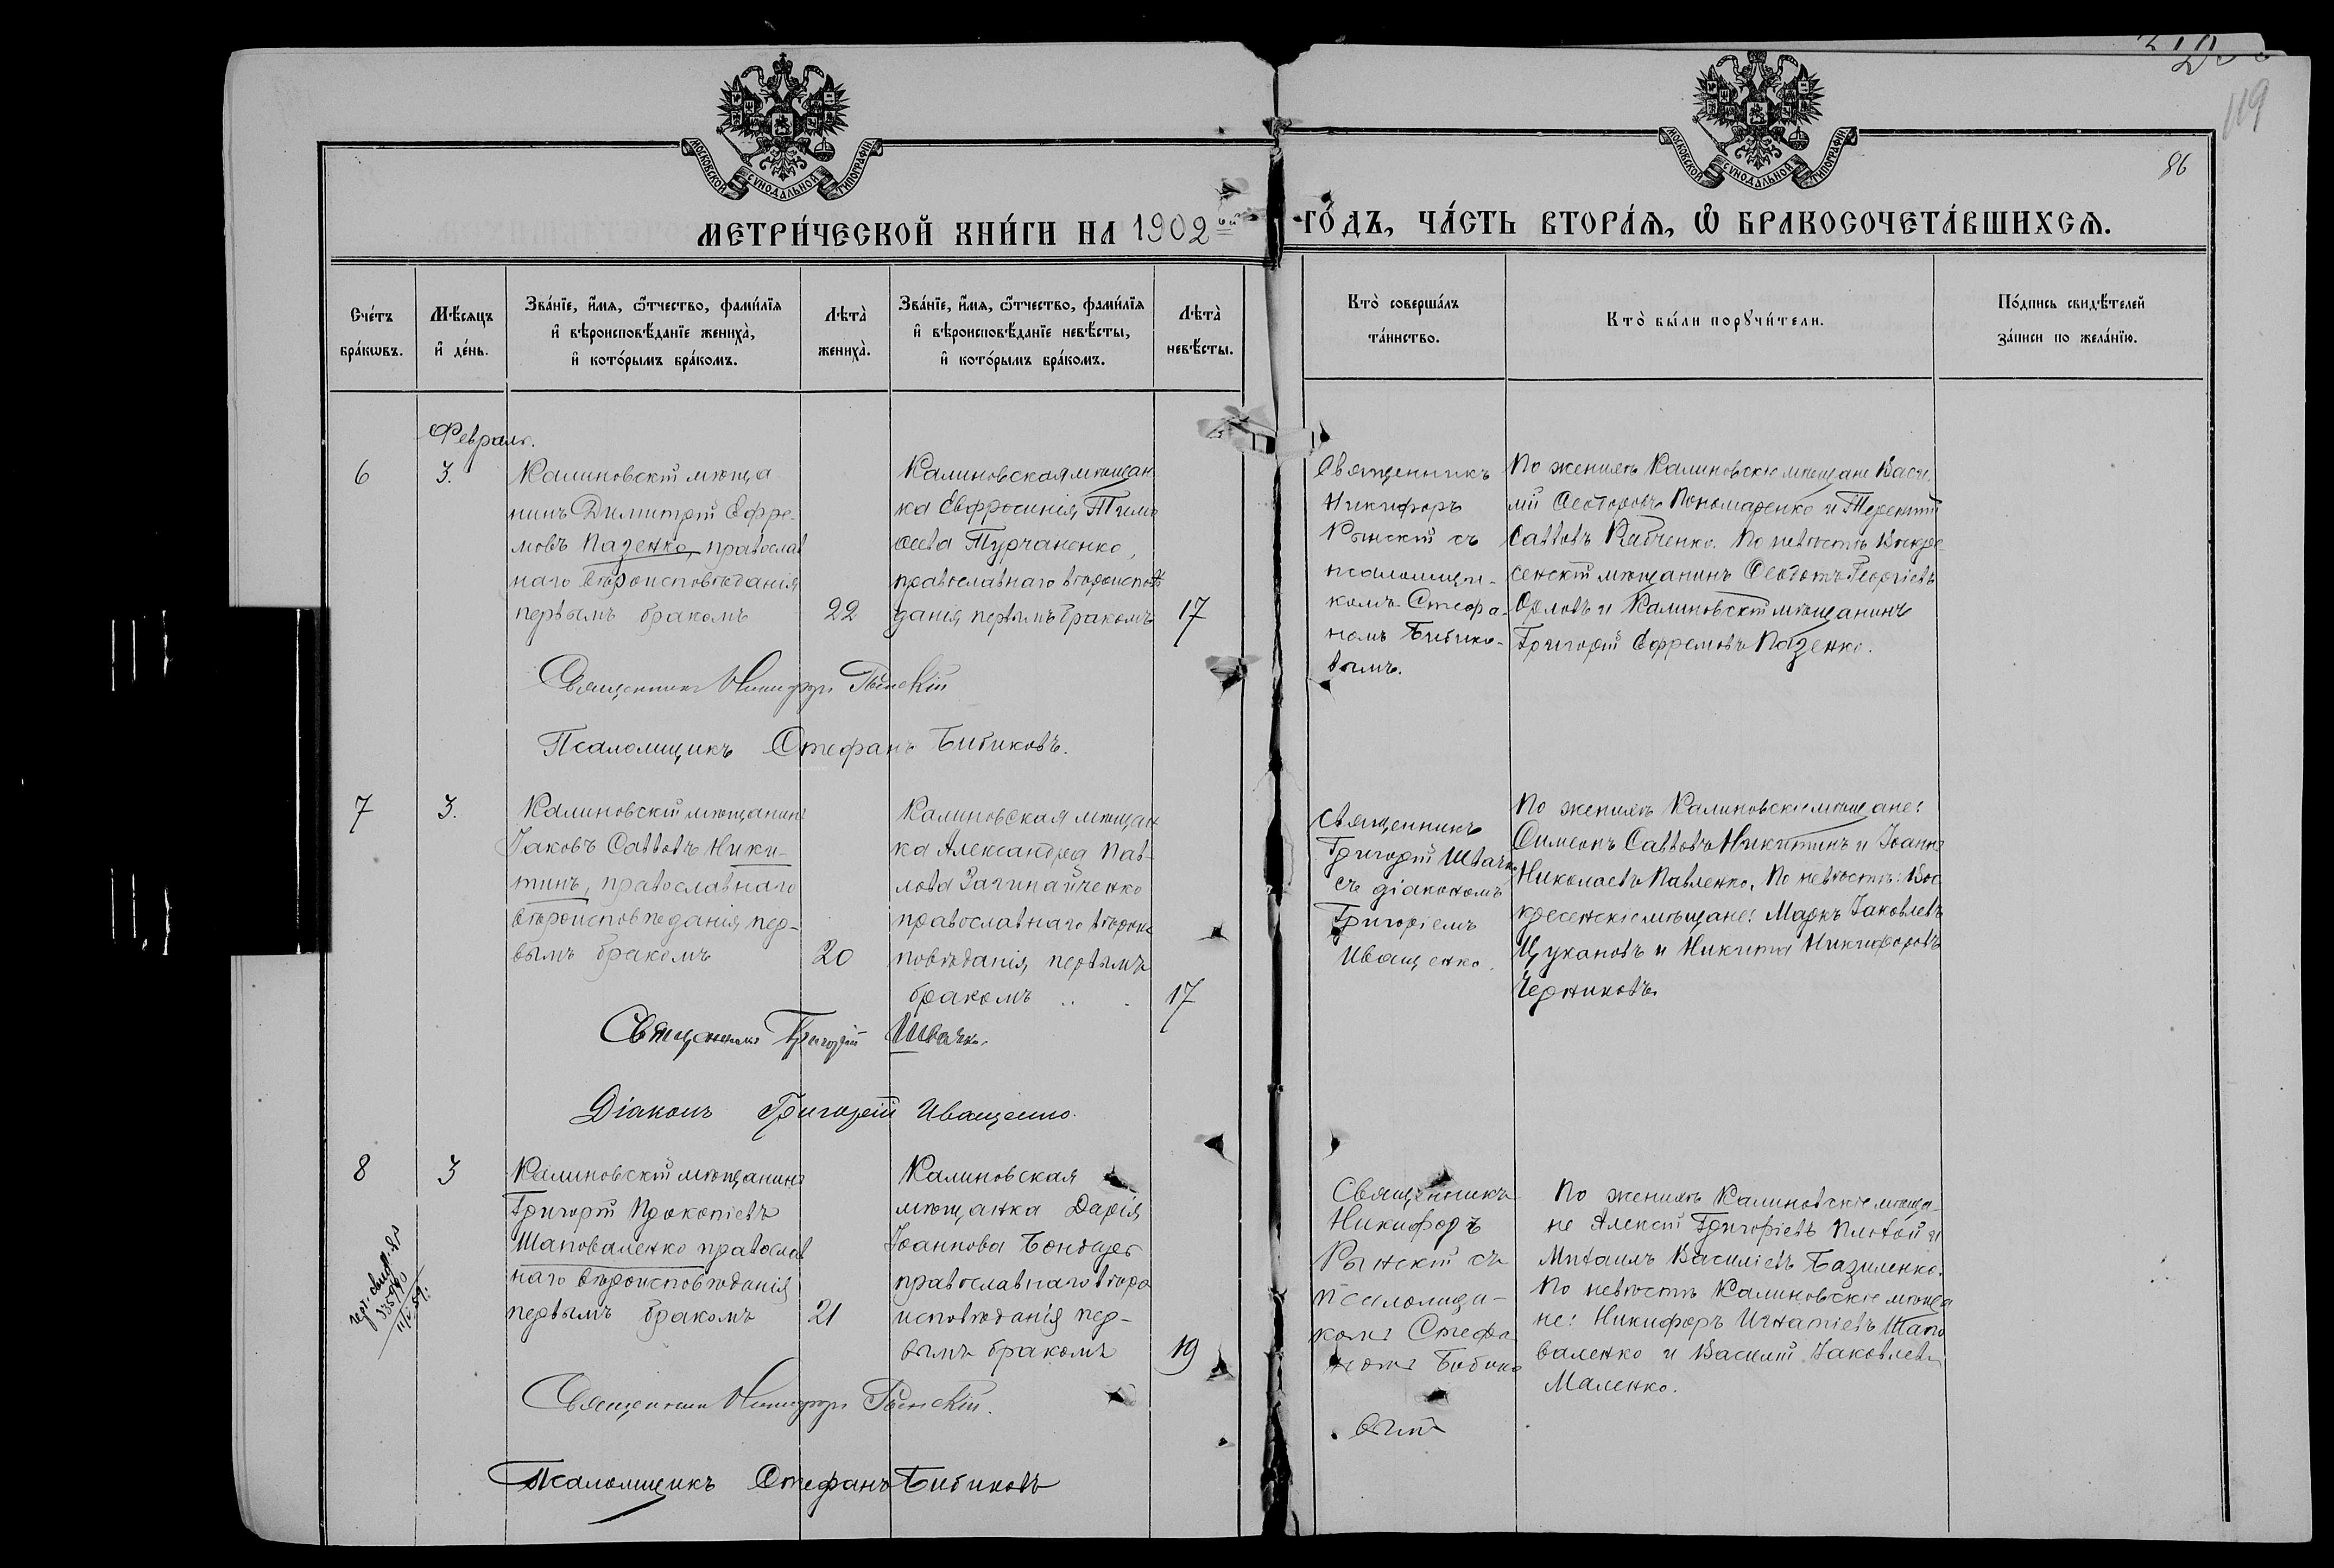 119
86
МОСКОВСКОЙ СѴНОДАЛЬНОЙ ТИПОГРАФІИ
МОСКОВСКОЙ СѴНОДАЛЬНОЙ ТИПОГРАФІИ
МЕТРИ́ЧЕСКОЙ КНИ́ГИ НА 1902 ГО́ДЪ, ЧА́СТЬ ВТОРА́Ѧ, Ѡ҆ БРАКОСОЧЕТА́ВШИХСѦ.
Сче́тъ
бра́кѡвъ.
Мѣ́сяцъ
и҆ де́нь.
Зва́нїе, и҆́мя, ѻ҆́тчество, фами́лїя
и҆ вѣроисповѣ́данїе жениха̀,
и҆ кото́рымъ бра́комъ.
Лѣта̀
жениха̀.
Зва́нїе, и҆́мя, ѻ҆́тчество, фами́лїя
и҆ вѣроисповѣ́данїе невѣ́сты,
и҆ кото́рымъ бра́комъ.
Лѣта̀
невѣ́сты.
Кто̀ соверша́лъ
та́инство.
Кто̀ бы́ли порꙋчи́тели.
По́дпись свидѣ́телей
за́писи по жела́нїю.
Февраль.
6
3.
Калиновскій мѣща
нинъ Димитрій Ефре-
мовъ Пазенко, православ
наго вѣроисповѣданія
первымъ бракомъ
22
Калиновская мѣщан
ка Евфросинія Тимо
ѳеева Турчаненко,
православнаго вѣроисповѣ
данія, первымъ бракомъ
17
Священникъ
Никифоръ
Рынскій съ
псаломщи-
комъ Стефа-
номъ Бибико-
вымъ.
По женихѣ Калиновскіе мѣщане Васи-
лій Ѳеодоровъ Пономаренко и Терентій
Савовъ Рябченко. По невѣстѣ Воскре
сенскій мѣщанинъ Ѳеодотъ Георгіевъ
Орловъ и Калиновскій мѣщанинъ
Григорій Ефремовъ Пазенко.
Священникъ Никифоръ Рынскій
Псаломщикъ Стефанъ Бибиковъ.
7
3.
Калиновскій мѣщанинъ
Іаковъ Саввовъ Ники-
тинъ, православнаго
вѣроисповѣданія, пер-
вымъ бракомъ
20
Калиновская мѣщан
ка Александра Пав-
лова Загинайченко
православнаго вѣроис
повѣданія, первымъ
бракомъ
17
Священникъ
Григорій Швачко
съ діакономъ
Григоріемъ
Иващенко.
По женихѣ Калиновскіе мѣщане:
Симеонъ Саввовъ Никитинъ и Іоаннъ
Николаевъ Павленко. По невѣстѣ: Вос
кресенскіе мѣщане: Маркъ Іаковлевъ
Цукановъ и Никита Никифоровъ
Черниковъ.
Священникъ Григорій Швачко.
Діаконъ Григорій Иващенко.
8
3
Калиновскій мѣщанинъ
Григорій Прокопіевъ
Шаповаленко православ
наго вѣроисповѣданія
первымъ бракомъ
21
Калиновская
мѣщанка Дарія
Іоаннова Бондарь
православнаго вѣро
исповѣданія пер-
вымъ бракомъ
19
Священникъ
Никифоръ
Рынскій съ
псаломщи-
комъ Стефа
номъ Бибико
вымъ
По женихѣ Калиновскіе мѣща-
не Алексій Григорьевъ и
Михаилъ Василіевъ Базиленко.
По невѣстѣ Калиновскіе мѣща
не: Никифоръ Игнатіевъ Шапо
валенко и Василій Іаковлевъ
Маленко.
Священникъ Никифоръ Рынскій.
Псаломщикъ Стефанъ Бибиковъ